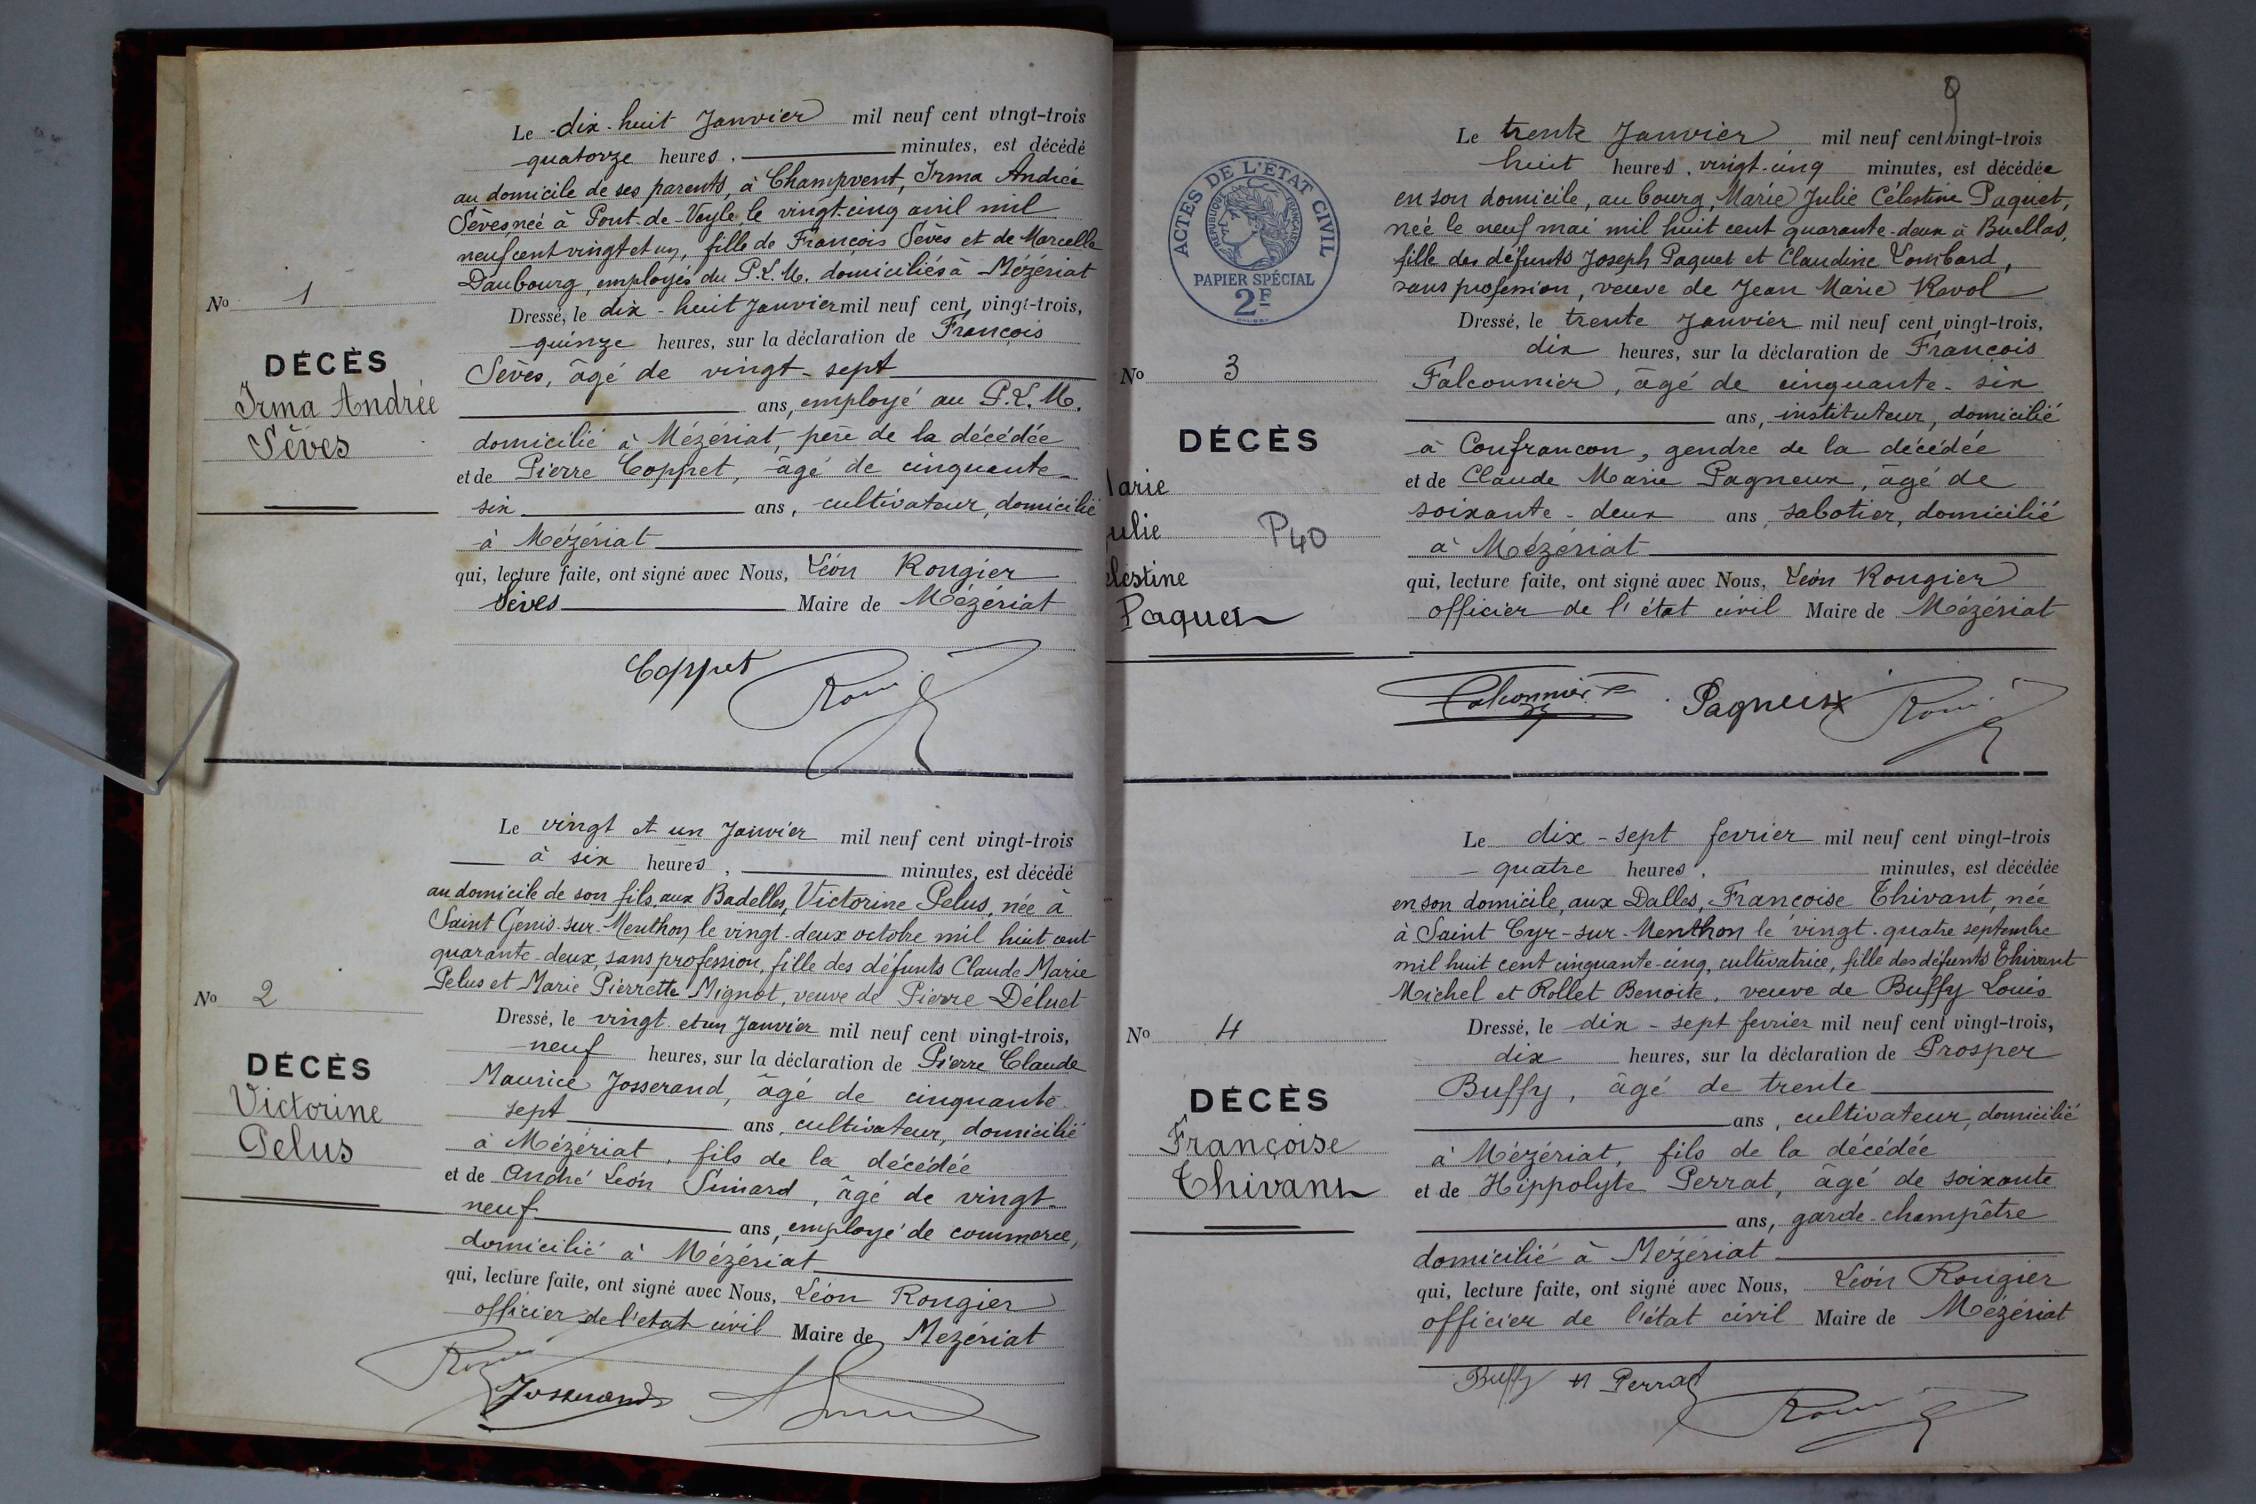 Le dix-huit Janvier mil neuf cent vingt-trois
quatorze heures, minutes, est décédé
au domicile de ses parents, à Champvent, Irma Andrée
Sèves, née à Pont-de-Veyle, le vingt-cinq avril mil
neuf cent vingt et un, fille de François Sèves et de Marcelle
Daubourg, employés du P.L.M. domiciliés à Mézériat
Dressé, le dix-huit Janvier mil neuf cent vingt-trois,
quinze heures, sur la déclaration de François
Sèves, âgé de vingt-sept
ans, employé au P.L.M.
domicilié à Mézériat, père de la décédée
et de Pierre Coppet, âgé de cinquante-
six ans, cultivateur, domicilié
à Mézériat
qui, lecture faite, ont signé avec Nous, Léon Rougier
Sèves Maire de Mézériat
Coppet
No 1
DÉCÈS
Irma Andrée
Sèves
Le vingt et un Janvier mil neuf cent vingt-trois
à six heures, minutes, est décédé
au domicile de son fils, aux Badelles, Victorine Pelus, née à
Saint Genis-sur-Menthon le vingt-deux octobre mil huit cent
quarante-deux, sans profession, fille des défunts Claude Marie
Pelus et Marie Pierrette Mignot, veuve de Pierre Déluet
Dressé, le vingt et un Janvier mil neuf cent vingt-trois,
neuf heures, sur la déclaration de Pierre Claude
Maurice Josserand, âgé de cinquante-
sept ans, cultivateur, domicilié
à Mézériat, fils de la décédée
et de André Léon Simard, âgé de vingt-
neuf ans, employé de commerce,
domicilié à Mézériat
qui, lecture faite, ont signé avec Nous, Léon Rougier
officier de l'état civil Maire de Mézériat
Josserand
No 2
DÉCÈS
Victorine
Pelus
9
ACTES DE L'ÉTAT CIVIL
RÉPUBLIQUE FRANÇAISE
PAPIER SPÉCIAL
2F
Le trente Janvier mil neuf cent vingt-trois
huit heures, vingt-cinq minutes, est décédée
en son domicile, au bourg, Marie Julie Célestine Paquet,
née le neuf mai mil huit cent quarante-deux à Buellas,
fille des défunts Joseph Paquet et Claudine Lombard,
sans profession, veuve de Jean Marie Ravol
Dressé, le trente Janvier mil neuf cent vingt-trois,
dix heures, sur la déclaration de François
Falconnier, âgé de cinquante-six
ans, instituteur, domicilié
à Confrancon, gendre de la décédée
et de Claude Marie Pagneux, âgé de
soixante-deux ans, sabotier, domicilié
à Mézériat
qui, lecture faite, ont signé avec Nous, Léon Rougier
officier de l'état civil Maire de Mézériat
Falconnier Pagneux
No 3
DÉCÈS
Marie
Julie P40
Célestine
Paquet
Le dix-sept fevrier mil neuf cent vingt-trois
quatre heures, minutes, est décédée
en son domicile, aux Dalles, Françoise Thivant, née
à Saint Cyr-sur-Menthon le vingt-quatre septembre
mil huit cent cinquante-cinq, cultivatrice, fille des défunts Thivant
Michel et Rollet Benoite, veuve de Buffy Louis
Dressé, le dix-sept fevrier mil neuf cent vingt-trois,
dix heures, sur la déclaration de Prosper
Buffy, âgé de trente
ans, cultivateur, domicilié
à Mézériat, fils de la décédée
et de Hippolyte Perrat, âgé de soixante
ans, garde-champêtre
domicilié à Mézériat
qui, lecture faite, ont signé avec Nous, Léon Rougier
officier de l'état civil Maire de Mézériat
Buffy H Perrat
No 4
DÉCÈS
Françoise
Thivant